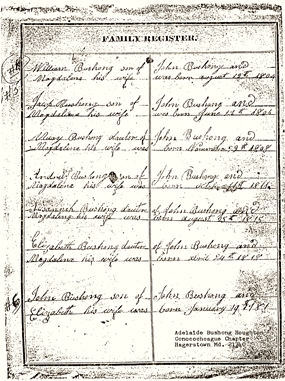 FAMILY REGISTER.
William Bushong son of John Bushong and
Magdalena his wife was born august 19th 1804
Jacob Bushong son of John Bushong and
Magdalena his wife was born June 12th 1806
Bushong daution John Bushong and
Magdalena his wife was born November 29th 1808
Andrew Bushong son of John Bushong and
Magdalena his wife was born
Susannah Bushong daution of John Bushong and
Magdalena his wife was born august 25th 1815
Elizabeth Bushong daution of John Bushong and
Magdalena his wife was born 24th 1818
#6
John Bushong son of John Bushong and
Elizabeth his wife was born January 19
Adelaide Bushong Houghton
Conococheague Chapter
Hagerstown Md.